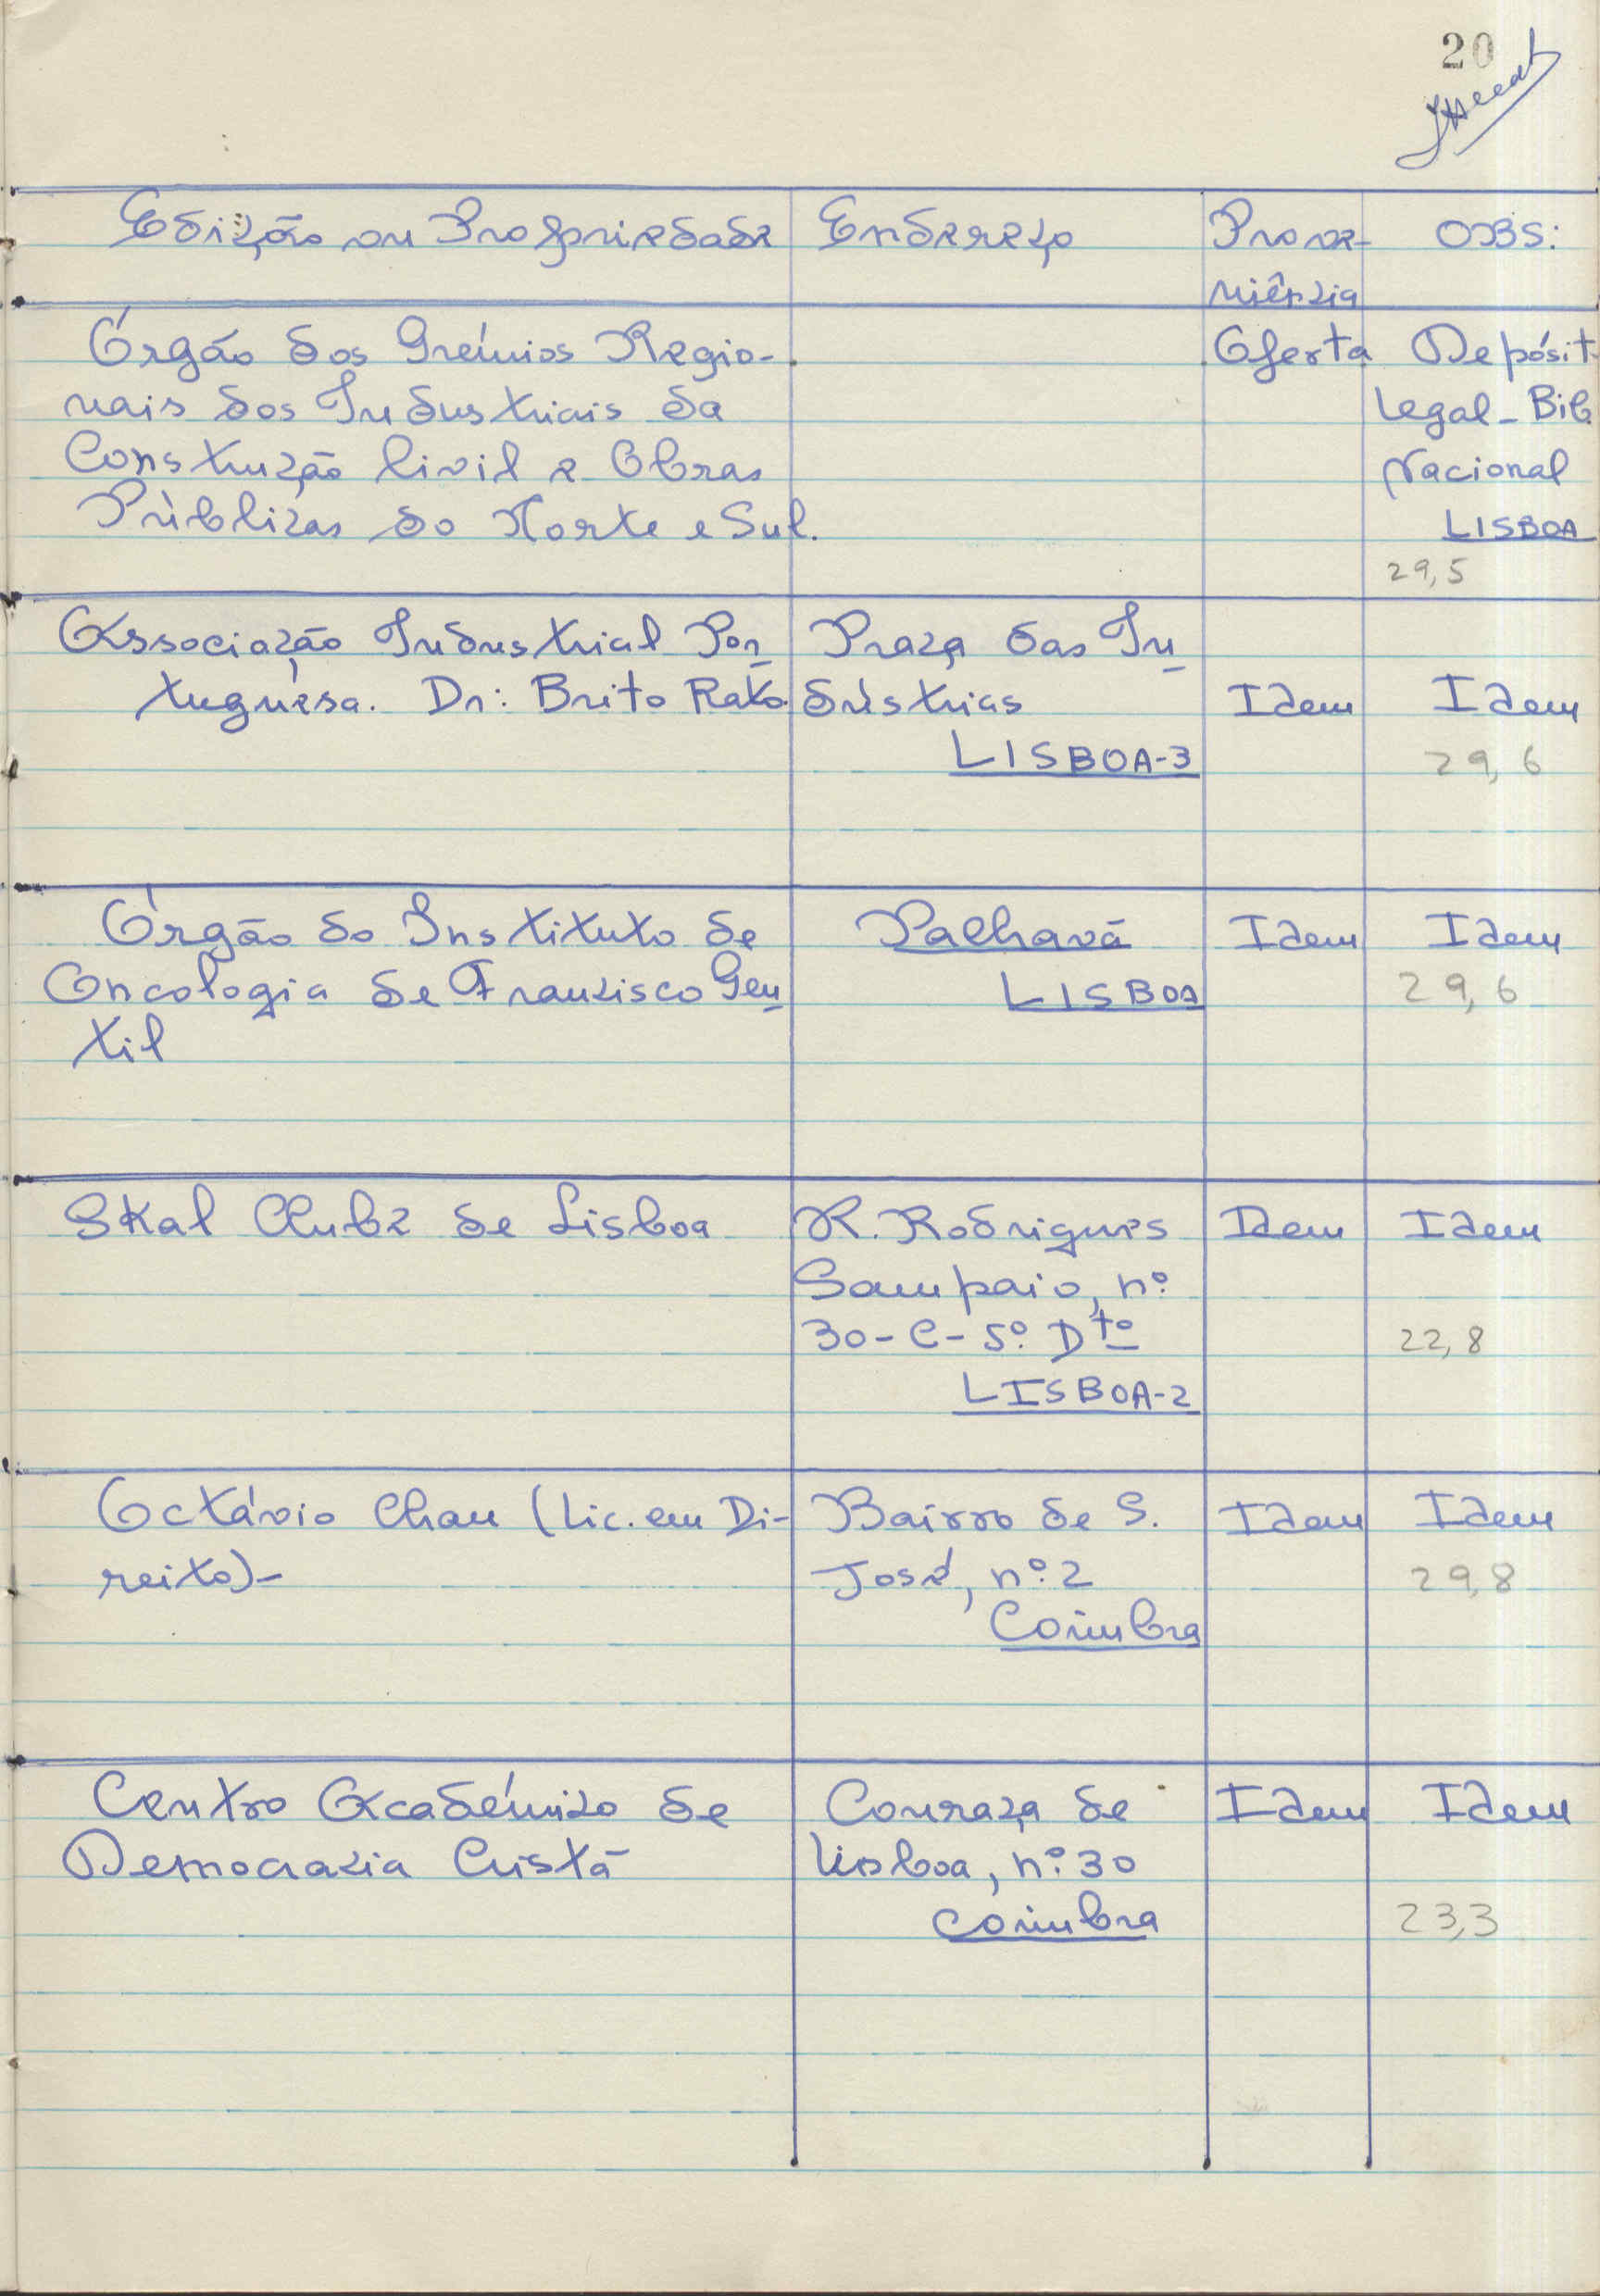 20
Edição ou Propriedade Endereço Prove- OBS:
niência
Órgão dos Grémios Regio- Oferta Depósit.
nais dos Industriais da Legal - Bib.
Construção Civil e Obras Nacional
Públicas do Norte e Sul. LISBOA
29,5
Associação Industrial Por- Praça das In-
tuguesa. Dr: Brito Rato. dústrias Idem Idem
LISBOA-3 29,6
Órgão do Instituto de Palhavã Idem Idem
Oncologia de Francisco Gen- LISBOA 29,6
til
Skal Clube de Lisboa R. Rodrigues Idem Idem
Sampaio, nº
30-C-5º. Dtº 22,8
LISBOA-2
Octávio Chau (Lic. em Di- Bairro de S. Idem Idem
reito)- José, nº. 2 29,8
Coimbra
Centro Académico de Couraça de Idem Idem
Democracia Cristã Lisboa, nº. 30
Coimbra 23,3